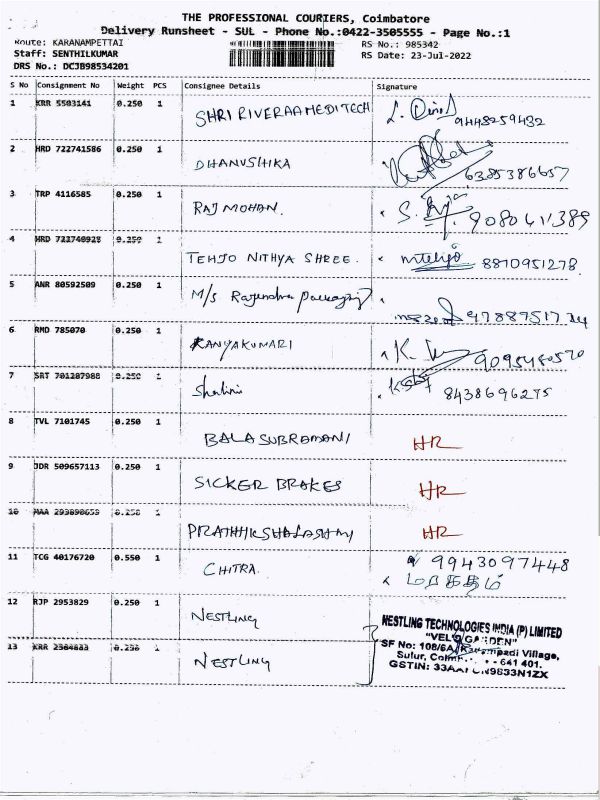 THE PROFESSIONAL COURIERS, Coimbatore
Delivery Runsheet - SUL - Phone No.:0422-3505555 - Page No.:1
Route: KARANAMPETTAI RS No.: 985342
Staff: SENTHILKUMAR RS Date: 23-Jul-2022
DRS No.: DCJB98534201
S No Consignment No Weight PCS Consignee Details Signature
1 KRR 5503141 0.250 1 SHRI RIVERAA MEDITECH 9448259432
2 HRD 722741586 0.250 1 DHANUSHIKA 6385386657
3 TRP 4116585 0.250 1 RAJ MOHAN. 9080411389
4 HRD 722740928 0.250 1 TEHJO NITHYA SHREE. 8870951278
5 ANR 80592509 0.250 1 M/s Rajendra
6 RMD 785070 0.250 1 KANYAKUMARI
7 SRT 701287988 0.250 1 Shalini 8438696275
8 TVL 7101745 0.250 1 BALASUBRAMANI HR
9 JDR 509657113 0.250 1 SICKER BRAKES HR
10 MAA 0.250 1 HR
11 TCG 40176720 0.550 1 CHITRA. 9943097448
மரகதம்
12 RJP 2953829 0.250 1 NESTLING
13 KRR 0.250 1 NESTLING
NESTLING TECHNOLOGIES INDIA (P) LIMITED
"VELS GARDEN"
SF No: 108/6A, Village,
Sulur, - 641 401.
GSTIN: